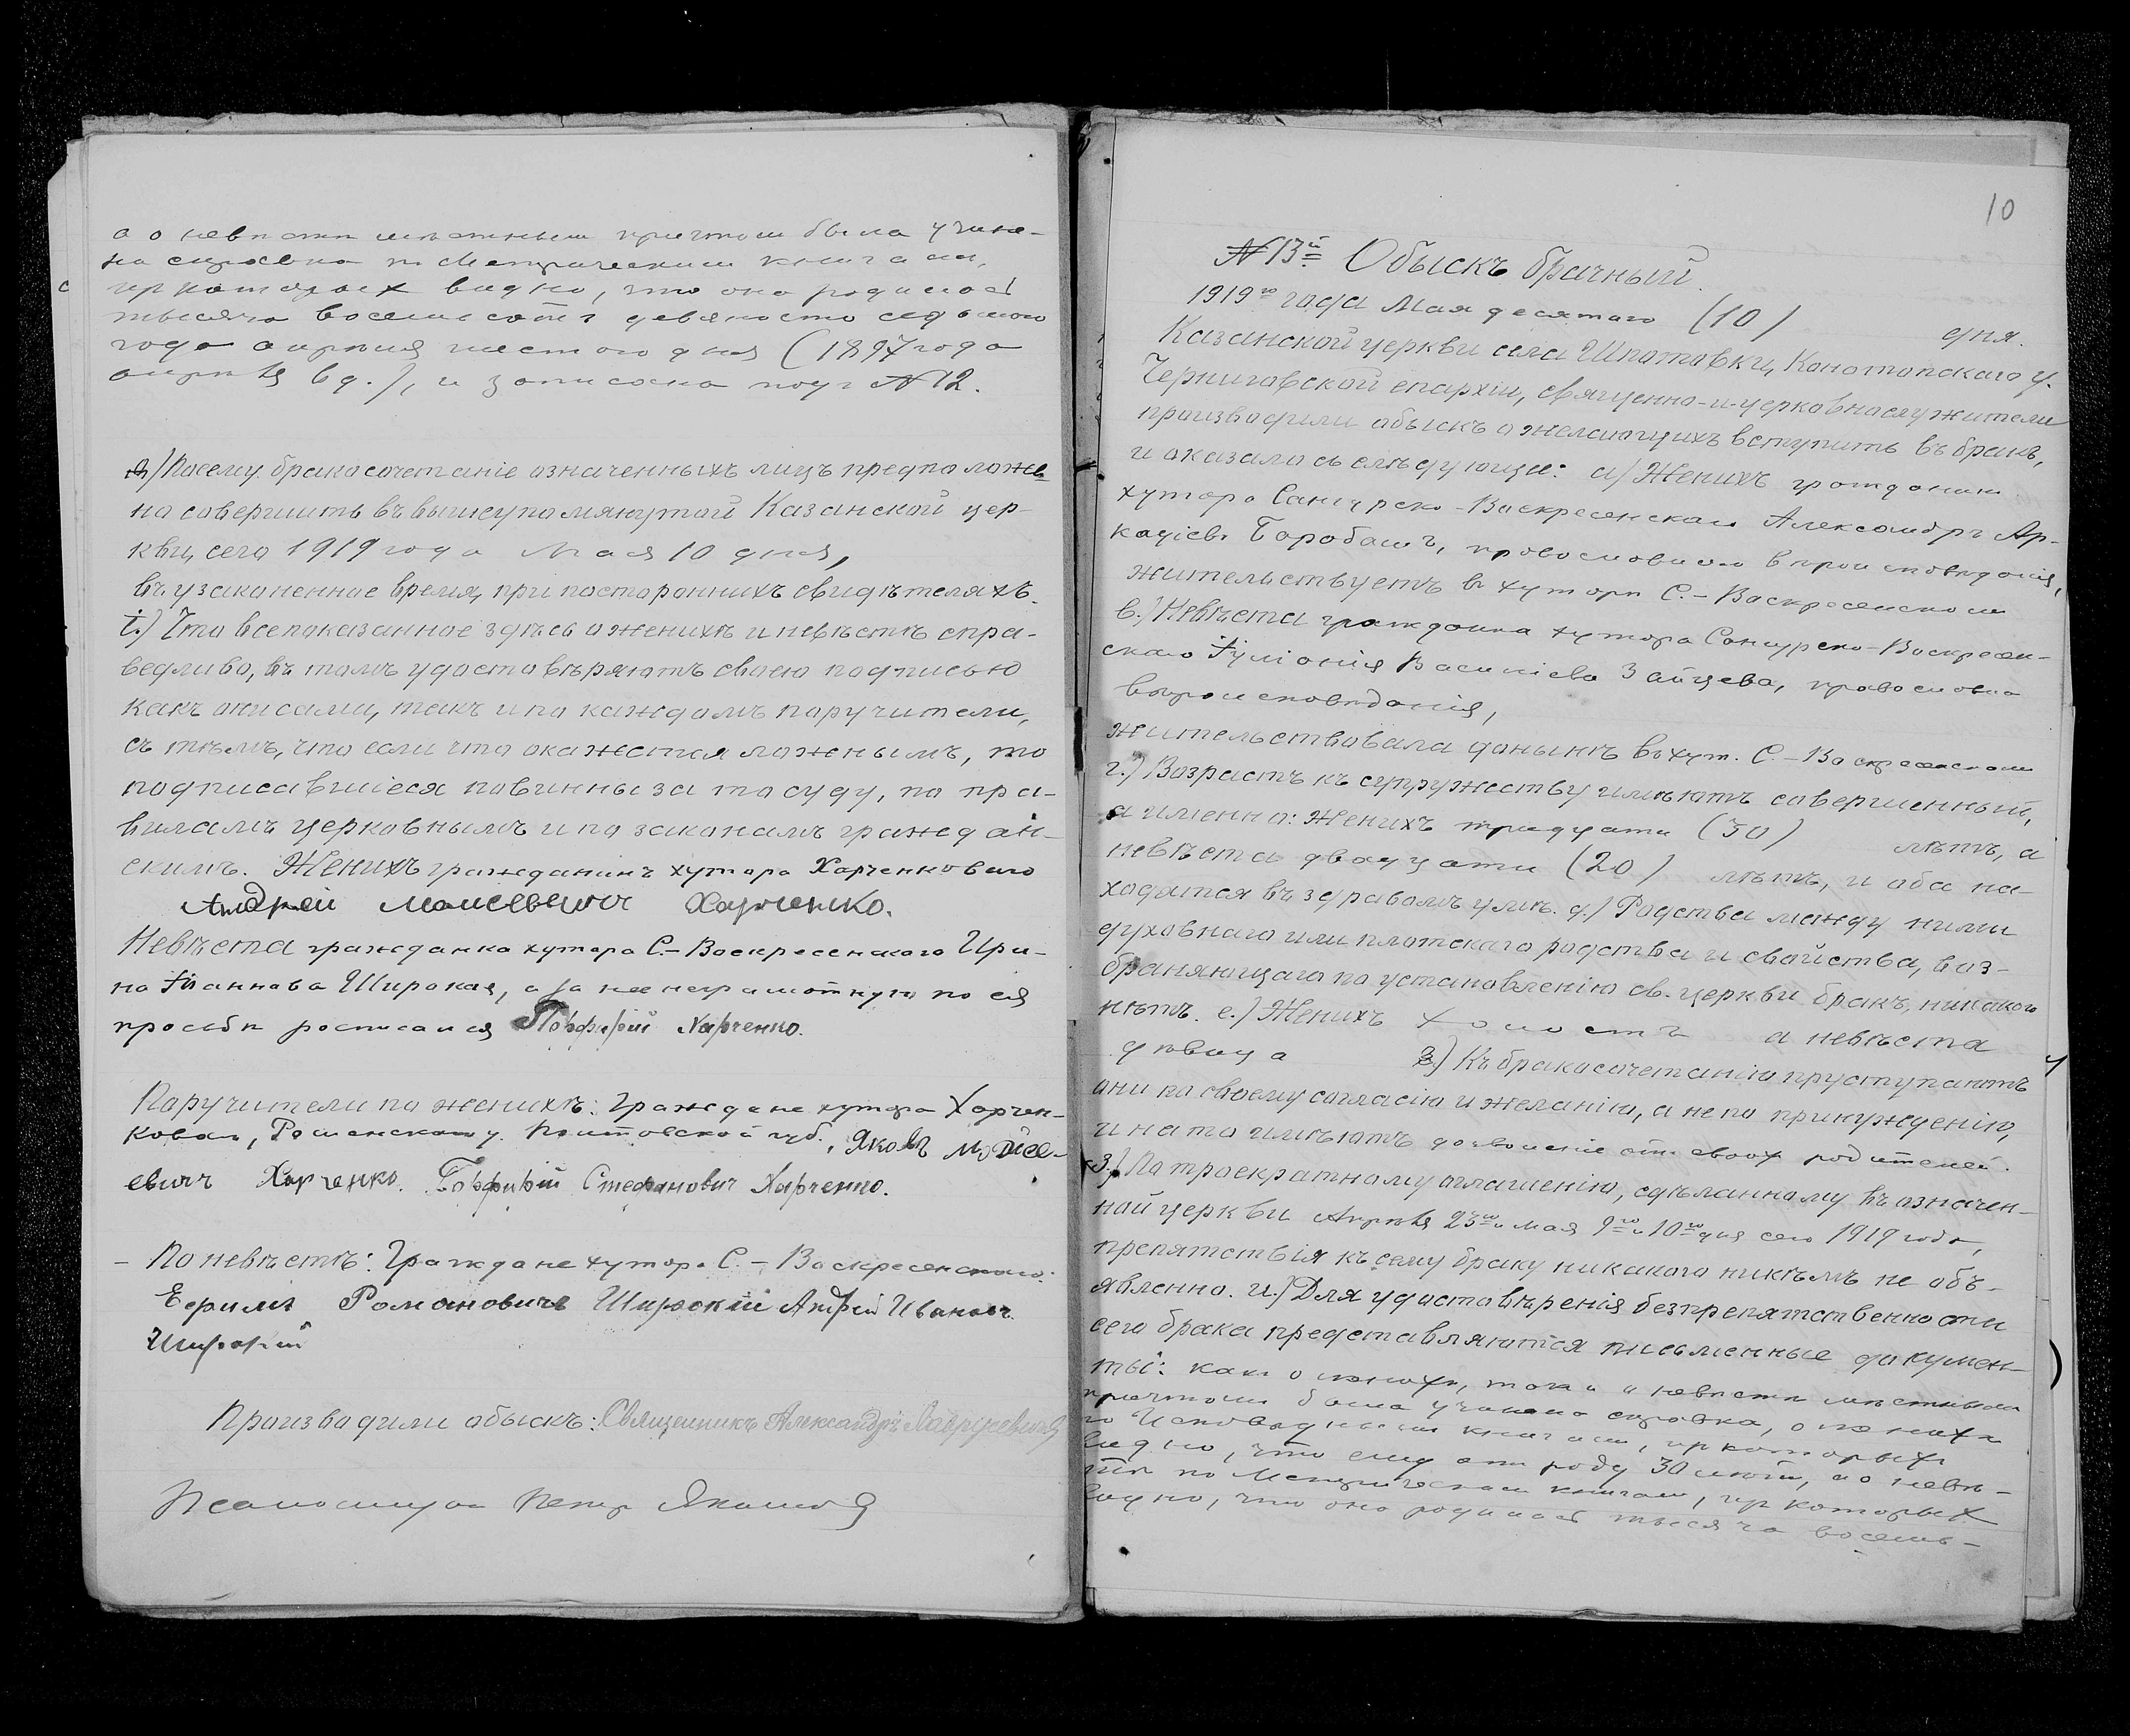 а о невѣсти мѣстнымъ причтомъ была учине-
на справка по Метрическимъ книгамъ,
изъ которыхъ видно, что она родилась
тысяча восемьсотъ девяносто седьмого
года апрѣля шестого дня (1897 года
апрѣля 6 д.), и записана подъ № 12.
Посему бракосочетаніе означенныхъ лицъ предположе-
но совершить въ вышеупомянутой Казанской цер-
кви, сего 1919 года Мая 10 дня,
въ узаконенное время, при постороннихъ свидѣтеляхъ.
і.) Что все показанное здѣсь о женихѣ и невѣстѣ спра-
ведливо, въ томъ удостовѣряютъ своею подписью
какъ они сами, такъ и по каждомъ поручители,
съ тѣмъ, что если что окажется ложнымъ, то
подписавшіеся повинны за то суду, по пра-
виламъ церковнымъ и по законамъ граждан-
скимъ. Женихъ гражданинъ хутора Харченковаго
Андрей Моисевичъ Харченко.
Невѣста гражданка хутора С.-Воскресенскаго Ири-
на Іоаннова Широкая, а за нее неграмотную по ея
просьбѣ росписался Порфирій Харченко.
Поручители по женихѣ: Граждане хутора Харчен-
коваго, Роменскаго у. Полтовской губ., Яковъ Мойсе-
евичъ Харченко. Порфирій Стефановичъ Харченко.
– По невѣстѣ: Граждане хутора С.-Воскресенскаго:
Ефимъ Романовичъ Широкій Андрей Ивановъ
Широкій
Производили обыскъ: Священникъ Александръ
Псаломщикъ Петръ
10
№ 13й Обыскъ брачный.
1919го года Мая десятаго (10) дня.
Казанской церкви села Шпотовки, Конотопскаго у.
Черниговской епархіи, священно-и-церковнослужители
производили обыскъ о желающихъ вступить въ бракъ,
и оказалось слѣдующее: а) Женихъ гражданинъ
хутора Сангурско-Воскресенскаго Александръ Ар-
кадіевъ Барабашъ, православнаго вѣроисповѣданія,
жительствуетъ въ хуторѣ С.-Воскресенскомъ
в.) Невѣста гражданка хутора Сангурско-Воскресен-
скаго Іуліанія Василіева Зайцева, православнаго
вѣроисповѣданія,
жительствовала донынѣ въ хут. С.-Воскресенскомъ
г.) Возрастъ къ супружеству имѣютъ совершенный,
а именно: женихъ тридцати (30) лѣтъ, а
невѣста двадцати (20) лѣтъ, и оба на-
ходятся въ здравомъ умѣ. д.) Родства между ними
духовнаго или плотскаго родства и свойства, воз-
браняющаго по установленію св. церкви бракъ, никакого
нѣтъ. е.) Женихъ холостъ а невѣста
дѣвица з.) Къ бракосочетанію пруступаютъ
они по своему согласію и желанію, а не по принужденію,
и на то имѣютъ дозволеніе отъ своихъ родителей.
з.) По троекратному оглашенію, сдѣланному въ означен-
ной церкви Апрѣля 23го, мая 9го и 10го дня сего 1919 года,
препятствія къ сему браку никакого никѣмъ не объ-
явленно. и.) Для удостовѣренія безпрепятственности
сего брака представляются письменные докумен-
ты: какъ о женихѣ, такъ и о невѣсти мѣстнымъ
причтомъ была учинена справка, о женихѣ
по Исповѣднымъ книгамъ, изъ которыхъ
видно, что ему отъ роду 30 лѣтъ, а о невѣ-
стѣ по Метрическимъ книгамъ, изъ которыхъ
видно, что она родилась тысяча восемь-